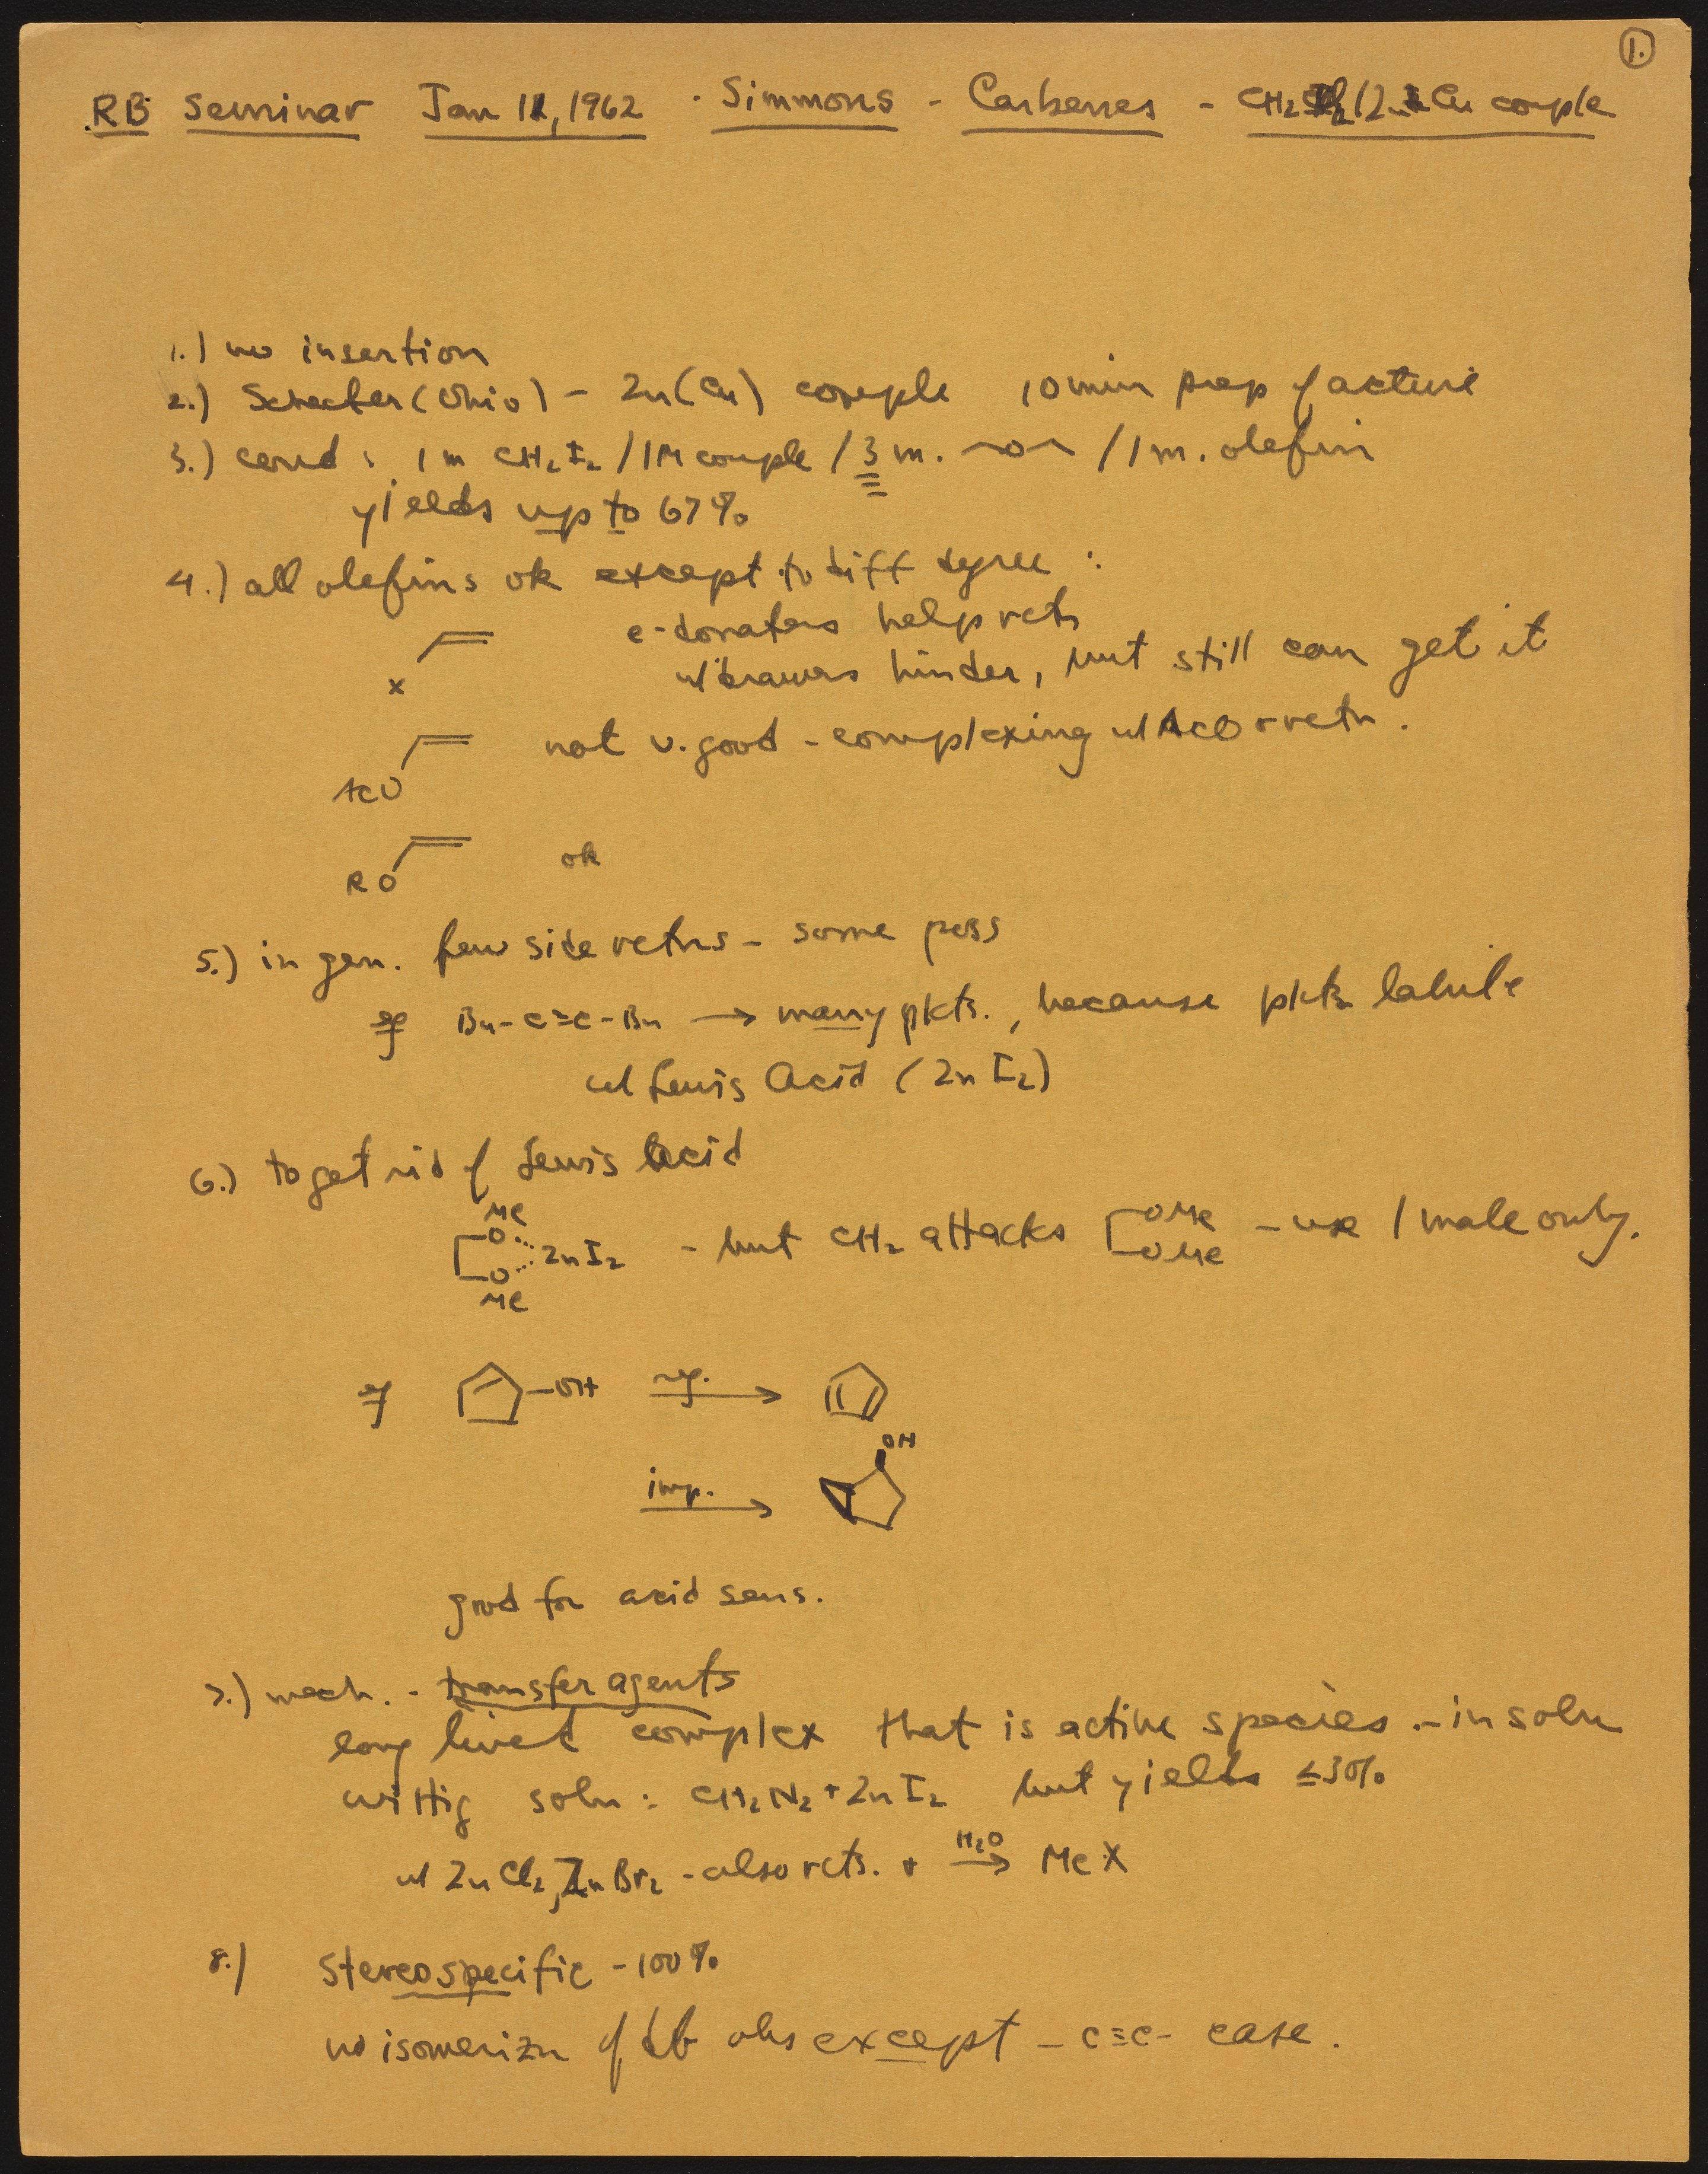 1.
RB Seminar Jan 11, 1962 · Simmons - Carbenes - CH₂I₂/Zn-Cu couple
1.) no insertion
2.) Schecter (Ohio) - Zn(Cu) couple 10 min prep of active
3.) cond: 1 m CH₂I₂ / 1M couple / 3 m. O / 1 m. olefin
yields up to 67%
4.) all olefins ok except to diff degree :
e-donators help rctn
X
w/drawers hinder, but still can get it
not v. good - complexing w/ AcO + rctn.
AcO
ok
RO
5.) in gen. few side rctns - some poss
eg Bu-C≡C-Bu → many pdts., because pdts labile
w/ Lewis Acid (ZnI₂)
6.) to get rid of Lewis Acid
Me
O
ZnI₂ - but CH₂ attacks OMe OMe - use 1 mole only.
O
Me
eg -OH reg. →
OH
imp. →
good for acid sens.
7.) mech. - transfer agents
long lived complex that is active species - in soln
Wittig soln : CH₂N₂ + ZnI₂ but yields ≤30%
w/ ZnCl₂, ZnBr₂ - also rcts. + H₂O → MeX
8.) Stereospecific - 100%
no isomerizn of db obs except -C≡C- case.